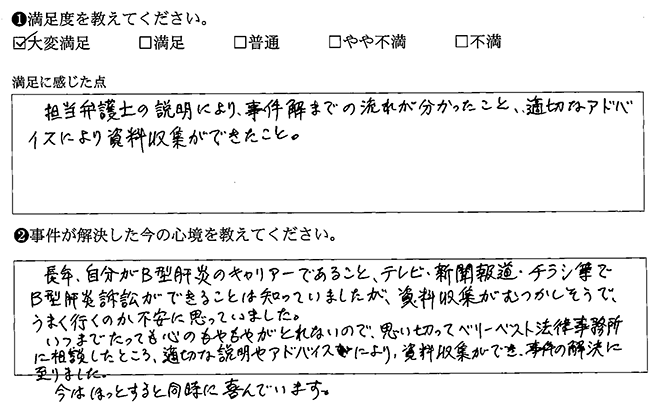 ❶満足度を教えてください。
☑大変満足 □満足 □普通 □やや不満 □不満
満足に感じた点
担当弁護士の説明により、事件解までの流れが分かったこと、、適切なアドバ
イスにより資料収集ができたこと。
❷事件が解決した今の心境を教えてください。
長年、自分がB型肝炎のキャリアーであること、テレビ・新聞報道・チラシ等で
B型肝炎訴訟ができることは知っていましたが、資料収集がむつかしそうで、
うまく行くのか不安に思っていました。
いつまでたっても心のもやもやがとれないので、思い切ってベリーベスト法律事務所
に相談したところ、適切な説明やアドバイスにより、資料収集ができ、事件の解決に
至りました。
今はほっとすると同時に喜んでいます。